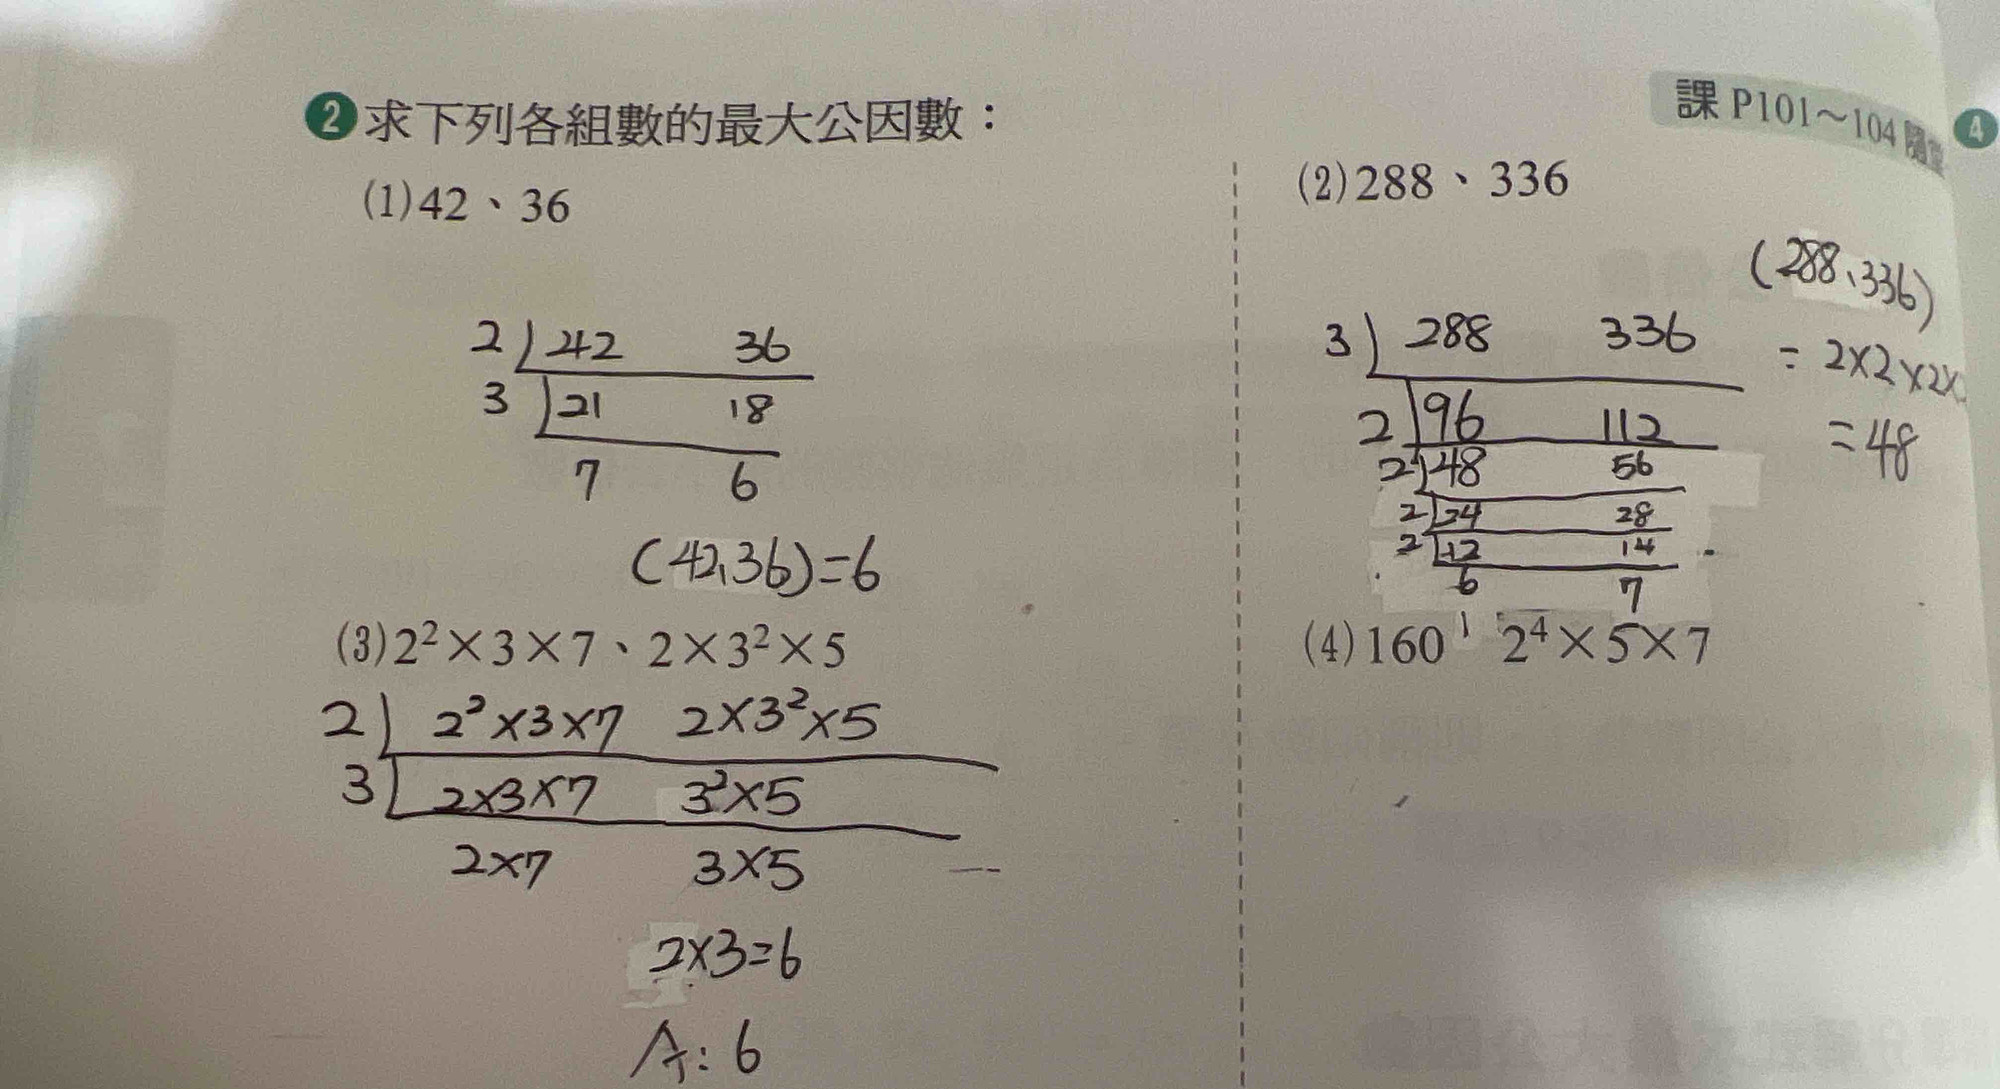 2 求下列各組數的最大公因數：
課 P101～104 隨堂
4
(1) 42、36
2 42 36
3 21 18
7 6
(42、36)=6
(2) 288、336
3 288 336
2 96 112
2 48 56
2 24 28
2 12 14
6 7
(288、336)
= 2×2×2×
=48
(3) 2²×3×7、2×3²×5
2 2²×3×7 2×3²×5
3 2×3×7 3²×5
2×7 3×5
2×3=6
A: 6
(4) 160、2⁴×5×7